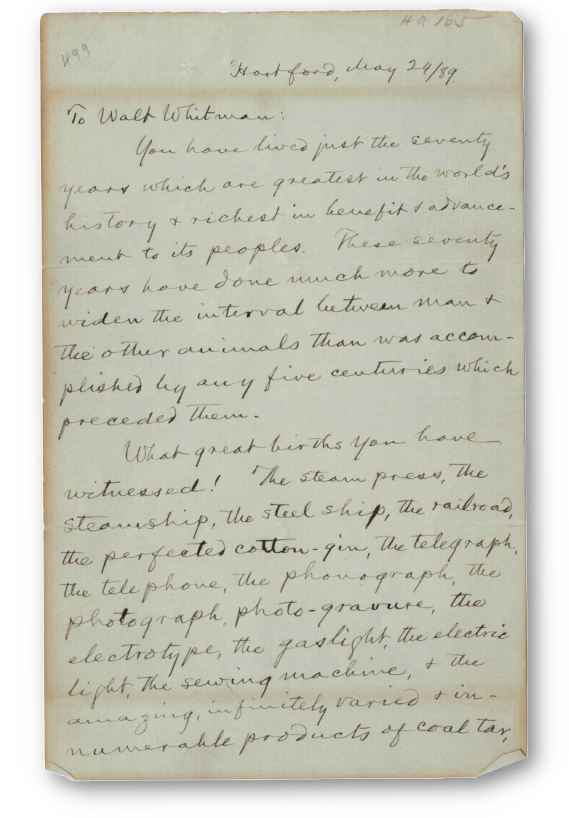 H A 165
499
Hartford, May 24/89.
To Walt Whitman:
You have lived just the seventy
years which are greatest in the world's
history & richest in benefit & advance-
ment to its peoples. These seventy
years have done much more to
widen the interval between man &
the other animals than was accom-
plished by any five centuries which
preceded them.
What great births you have
witnessed! The steam press, the
steamship, the steel ship, the railroad,
the perfected cotton-gin, the telegraph,
the telephone, the phonograph, the
photograph, photo-gravure, the
electrotype, the gaslight, the electric
light, the sewing machine, & the
amazing, infinitely varied & in-
numerable products of coal tar,